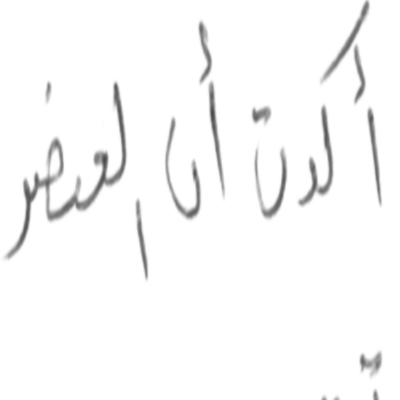 أكدت أن العنصر